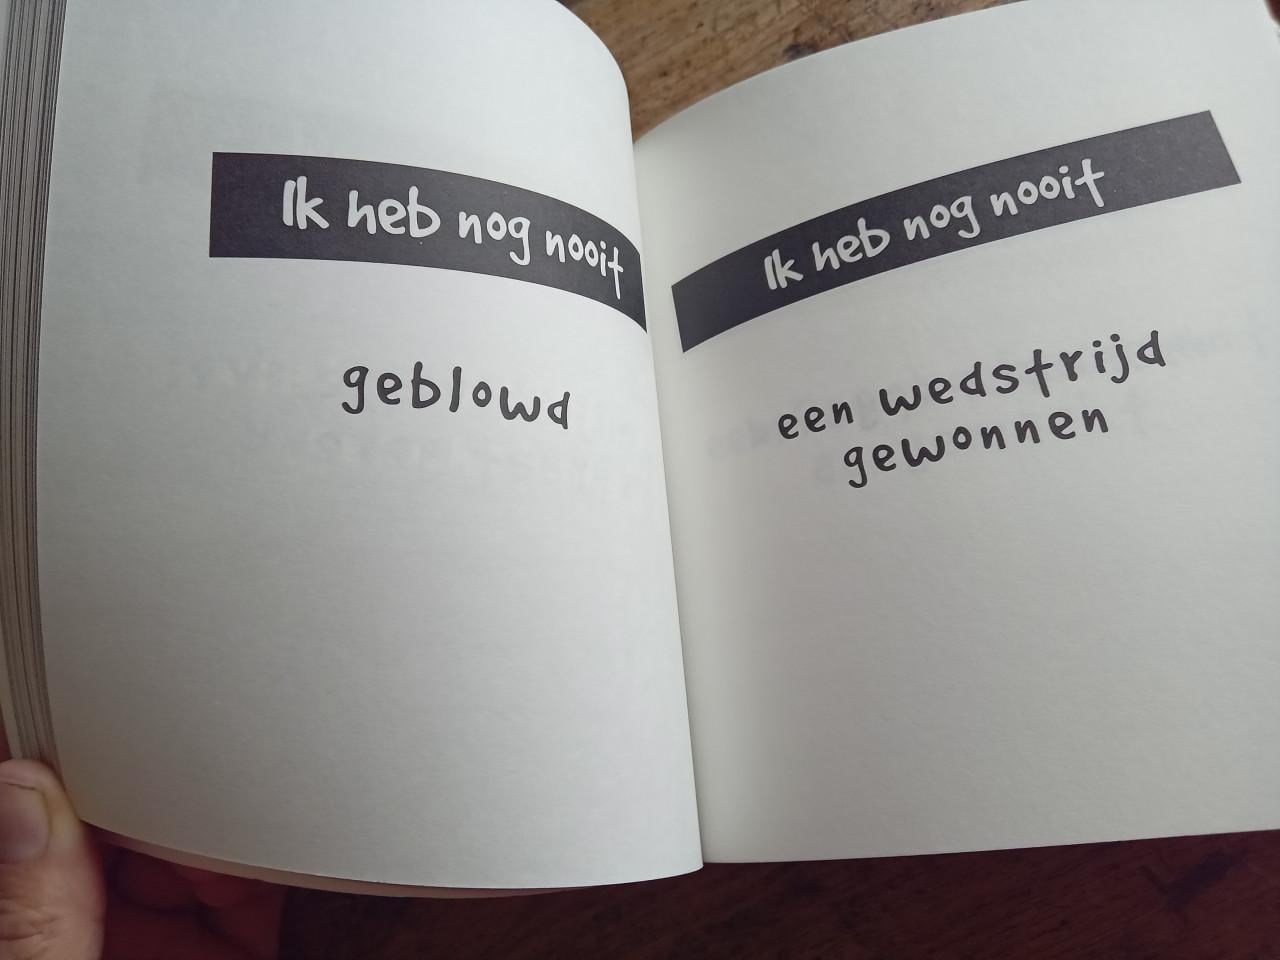 Ik heb nog nooit
geblowd
Ik heb nog nooit
een wedstrijd
gewonnen